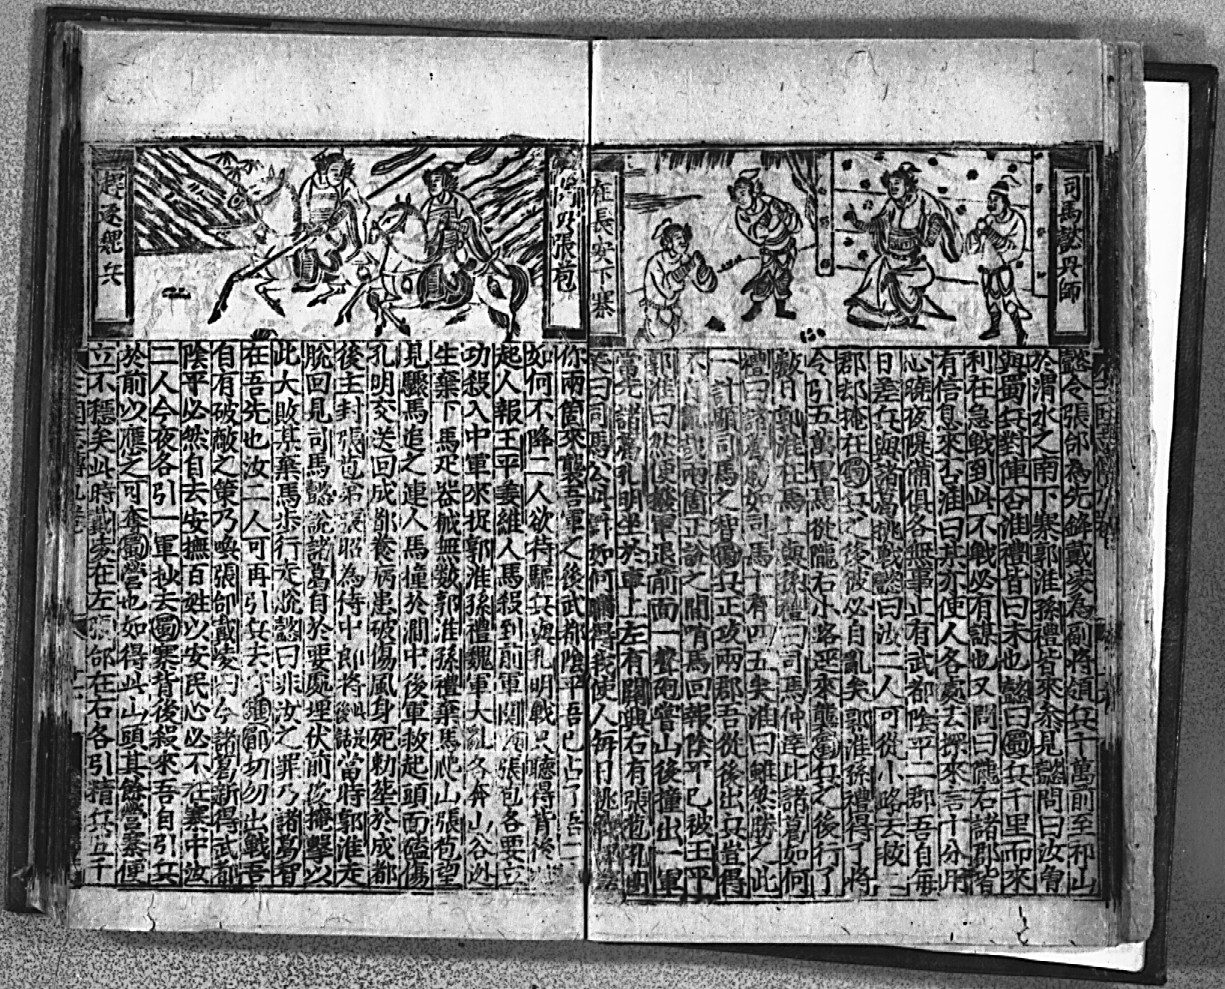 司馬懿興師
在長安下寨
懿令張郃為先鋒戴陵為副將領兵十萬前至祁山
於渭水之南下寨郭淮孫禮皆來參見懿問曰汝曾
與蜀兵對陣否淮禮皆曰未也懿曰蜀兵千里而來
利在急戰到此不戰必有謀也又問曰隴右諸郡皆
有信息來否淮曰某亦使人各處去探來言十分用
心曉夜隄備俱各無事止有武都陰平二郡吾自每
日差兵與諸葛挑戰懿曰汝二人可從小路去救二
郡却掩在蜀兵之後彼必自亂矣郭淮孫禮得了將
令引五萬軍馬從隴右小路逕來襲蜀兵之後行了
數日郭淮在馬上與孫禮曰司馬仲達比諸葛如何
禮曰諸葛感如司馬十有四五矣淮曰雖然勝之此
一計顯司馬之智蜀兵正攻兩郡吾從後出兵豈得
不自亂哉兩箇正說之間哨馬回報陰平已被王平
郭淮曰然便發軍退前面一聲砲響山後撞出一軍
當先諸葛孔明坐於車上左有關興右有張苞孔明
笑曰司馬公此計如何瞞得我使人每日挑戰
關興張苞
趕逐魏兵
你兩箇來襲吾軍之後武都陰平吾已占了吾二
如何不降二人欲待驅兵與孔明戰只聽得背後
起人報王平姜維人馬殺到前軍關興張苞各要立
功殺入中軍來捉郭淮孫禮魏軍大亂各奔山谷逃
生棄下馬疋器械無数郭淮孫禮棄馬爬山張苞望
見驟馬追之連人馬撞於澗中後軍救起頭面磕傷
孔明交送回成都養病患破傷風身死勅塟於成都
後主封張苞弟張昭為侍中郎將 當時郭淮走
脫回見司馬懿說諸葛自於要處埋伏前後掩擊以
此大敗某棄馬步行走脫懿曰非汝之罪乃諸葛智
在吾先也汝二人可再引兵去守 切勿出戰吾
自有破敵之策乃喚張郃戴陵曰今諸葛新得武都
陰平必然自去安撫百姓以安民心必不在寨中汝
二人今夜各引一軍抄去蜀寨背後殺來吾自引兵
於前以應之可奪蜀營也如得此山頭其餘營寨便
立不穩矣此時戴陵在左張郃在右各引精兵五千